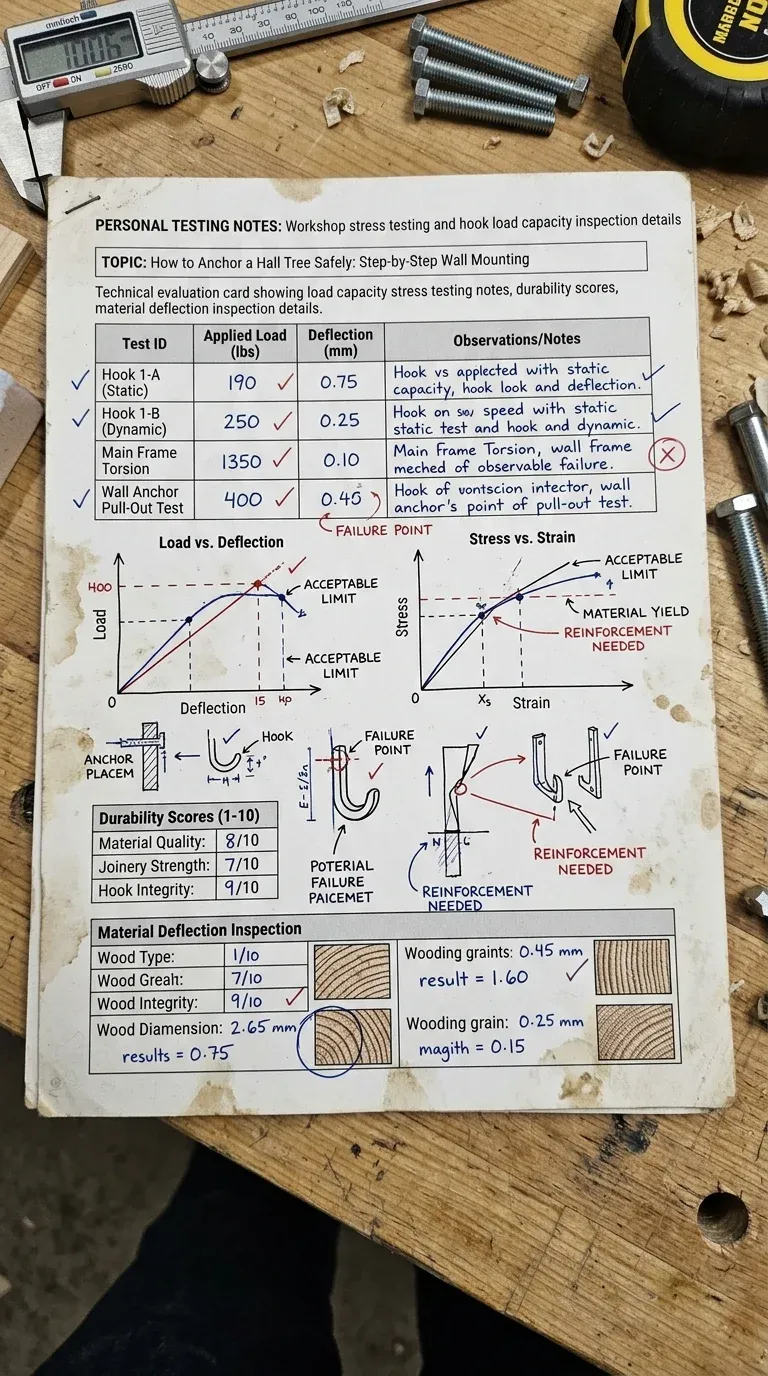 OFF ON 2590
PERSONAL TESTING NOTES: Workshop stress testing and hook load capacity inspection details
TOPIC: How to Anchor a Hall Tree Safely: Step-by-Step Wall Mounting
Technical evaluation card showing load capacity stress testing notes, durability scores,
material deflection inspection details.
Test ID
Applied Load
(lbs)
Deflection
(mm)
Observations/Notes
Hook 1-A
(Static)
190
0.75
Hook vs applected with static
capacity, hook look and deflection.
Hook 1-B
(Dynamic)
250
0.25
Hook on speed with static
static test and hook and dynamic.
Main Frame
Torsion
1350
0.10
Main Frame Torsion, wall frame
meched of observable failure.
Wall Anchor
Pull-Out Test
400
0.45
Hook of vontscion intector, wall
anchor's point of pull-out test.
FAILURE POINT
Load vs. Deflection
HOO
Load
ACCEPTABLE
LIMIT
ACCEPTABLE
LIMIT
0
Deflection
15
Stress vs. Strain
ACCEPTABLE
LIMIT
Stress
MATERIAL YIELD
REINFORCEMENT
NEEDED
0
Xs
Strain
ANCHOR
PLACEM
HOOK
FAILURE
POINT
POTERIAL
FAILURE
PAICEMET
REINFORCEMENT
NEEDED
FAILURE
POINT
REINFORCEMENT
NEEDED
Durability Scores (1-10)
Material Quality: 8/10
Joinery Strength: 7/10
Hook Integrity: 9/10
Material Deflection Inspection
Wood Type: 1/10
Wood Greah: 7/10
Wood Integrity: 9/10
Wood Diamension: 2.65 mm
results = 0.75
Wooding graints: 0.45 mm
result = 1.60
Wooding grain: 0.25 mm
magith = 0.15